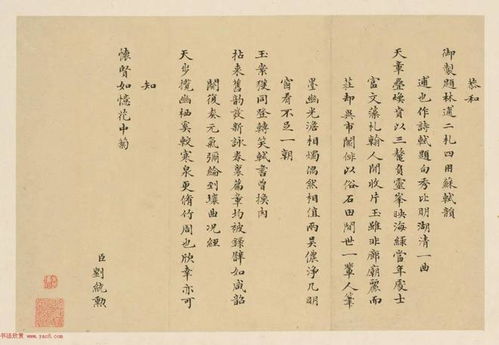 恭和
御製題林逋二札四用蘇軾韻
逋也作詩軾題句秀比明湖清一曲
天章疊焕賁以三鼇負靈峯映海緑當年處士
富文藻札翰人間收片玉雖非廊廟麗而
莊却與市闤俳以俗石田閒世一輩人筆
墨幽光澹相燭偶然相值兩吴儂淨几明
窗看不足一朝
玉案獲同登轉笑軾書曾換肉
拈来舊韻新詠春裏篇章均被録肆如咸韶
闋復奏元氣彌綸到壤曲况經
天步攬幽栖奚較寒泉更脩竹周也欣幸亦可
知
懷賢如憶花中菊
臣劉統勲
书法欣赏 www.yac8.com